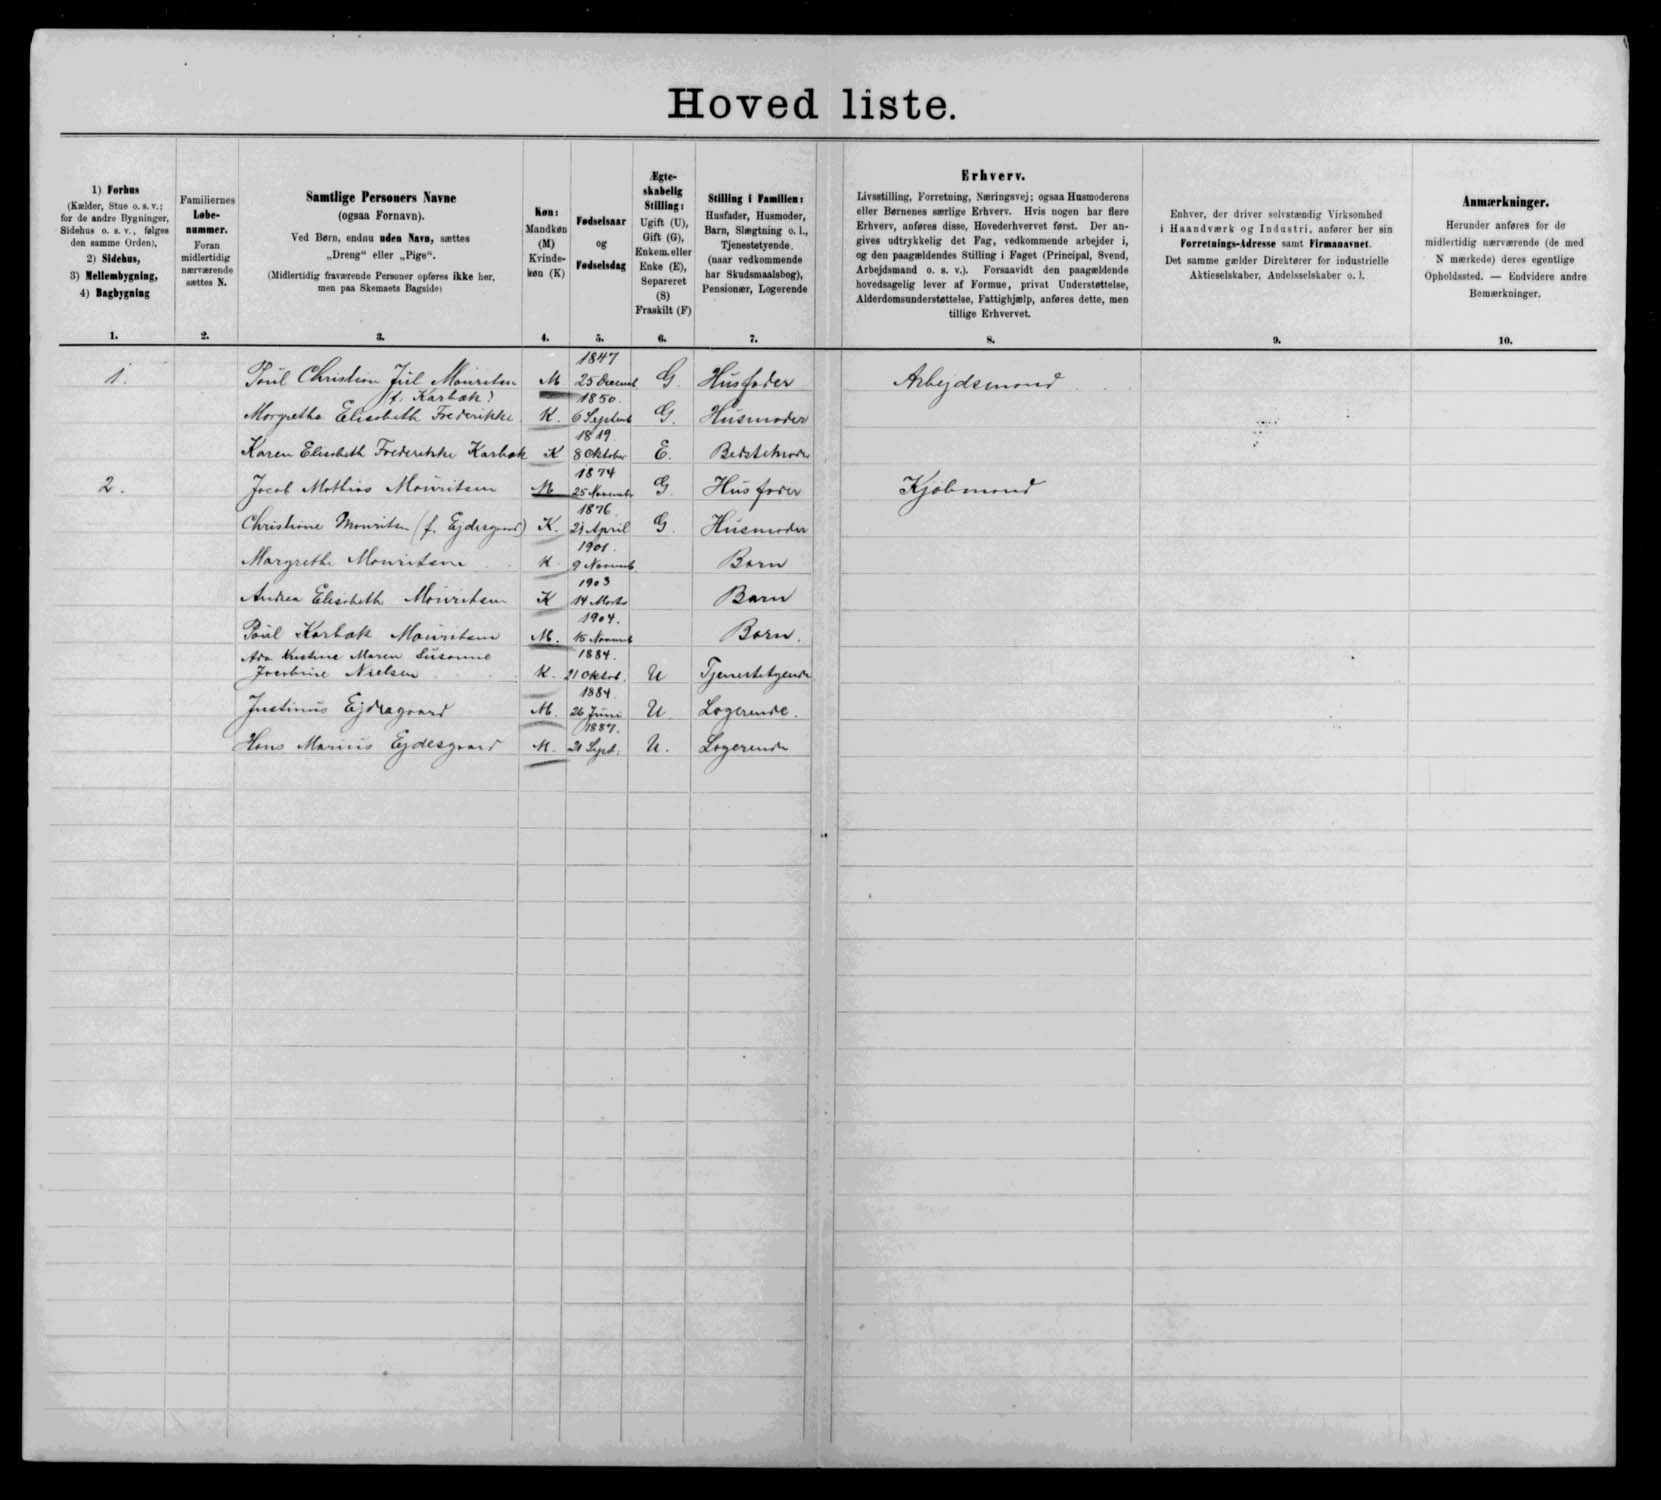 Hovedliste.
1) Forhus
(Kælder, Stue o. s. v.;
for de andre Bygninger,
Sidehus o. s. v., følges
den samme Orden),
2) Sidehus,
3) Mellembygning,
4) Bagbygning
1.
Familiernes
Løbe-
nummer.
Foran
midlertidig
nærværende
sættes N.
2.
Samtlige Personers Navne
(ogsaa Fornavn).
Ved Børn, endnu uden Navn, sættes
„Dreng“ eller „Pige“.
(Midlertidig fraværende Personer opføres ikke her,
men paa Skemaets Bagside)
3.
Køn:
Mandkøn
(M)
Kvinde-
køn (K)
4.
Fødselsaar
og
Fødselsdag
5.
Ægte-
skabelig
Stilling:
Ugift (U),
Gift (G),
Enkem. eller
Enke (E),
Separeret
(S)
Fraskilt (F)
6.
Stilling i Familien:
Husfader, Husmoder,
Barn, Slægtning o. l.,
Tjenestetyende.
(naar vedkommende
har Skudsmaalsbog),
Pensionær, Logerende
7.
Erhverv.
Livsstilling, Forretning, Næringsvej; ogsaa Husmoderens
eller Børnenes særlige Erhverv. Hvis nogen har flere
Erhverv, anføres disse, Hovederhvervet først. Der an-
gives udtrykkelig det Fag, vedkommende arbejder i,
og den paagældendes Stilling i Faget (Principal, Svend,
Arbejdsmand o. s. v.). Forsaavidt den paagældende
hovedsagelig lever af Formue, privat Understøttelse,
Alderdomsunderstøttelse, Fattighjælp, anføres dette, men
tillige Erhvervet.
8.
Enhver, der driver selvstændig Virksomhed
i Haandværk og Industri, anfører her sin
Forretnings-Adresse samt Firmanavnet.
Det samme gælder Direktører for industrielle
Aktieselskaber, Andelsselskaber o. l.
9.
Anmærkninger.
Herunder anføres for de
midlertidig nærværende (de med
N mærkede) deres egentlige
Opholdssted. — Endvidere andre
Bemærkninger.
10.
1. Poul Christian Juel Mouritsen M 1847 25 Decemb G. Husfader Arbejdsmand
(f. Karbæk)
Margretha Elisabeth Frederikke K. 1850. 6 Septemb G. Husmoder
Karen Elisabeth Frederikke Karbæk K 1819. 8 Oktober E. Bedstemoder
2. Jacob Mathias Mouritsen M 1874 25 November G. Husfader Kjøbmand
Christiane Mouritsen (f. Ejdesgaard) K. 1876. April G. Husmoder
Margrethe Mouritsen K. 1901. 9 Novemb. Barn
Andrea Elisabeth Mouritsen K 1903 14 Marts Barn
Poul Karbæk Mouritsen M. 1904. 15 Novemb Barn.
Ada Kristine Maren Susanne
Jacobine Nielsen K. 1884. 21 Oktob. U Tjenestetyende
Justinus Ejdesgaard M. 1884. 26 Juni U. Logerende.
Hans Marius Ejdesgaard M. 1887. 21 Sept. U. Logerende